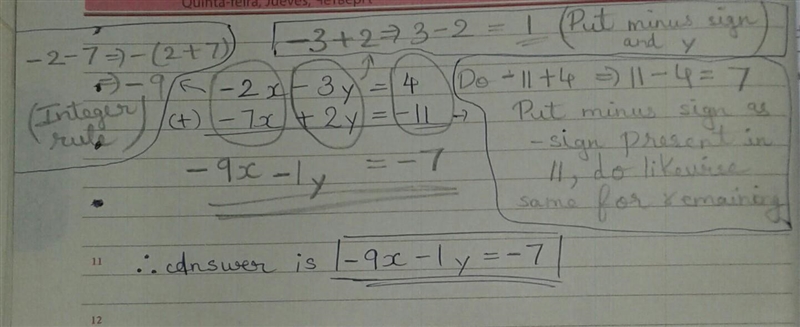 Quinta-feira, Jueves,
-2-7 ⇒ -(2+7)
⇒ -9
(Integer
rule
-3+2 ⇒ 3-2 = 1 (Put minus sign
and y
-2x - 3y = 4
(+) -7x + 2y = -11
-9x - 1y = -7
Do -11+4 ⇒ 11-4 = 7
Put minus sign as
-sign present in
11, do likewise
same for remaining
11
∴ Answer is -9x - 1y = -7
12